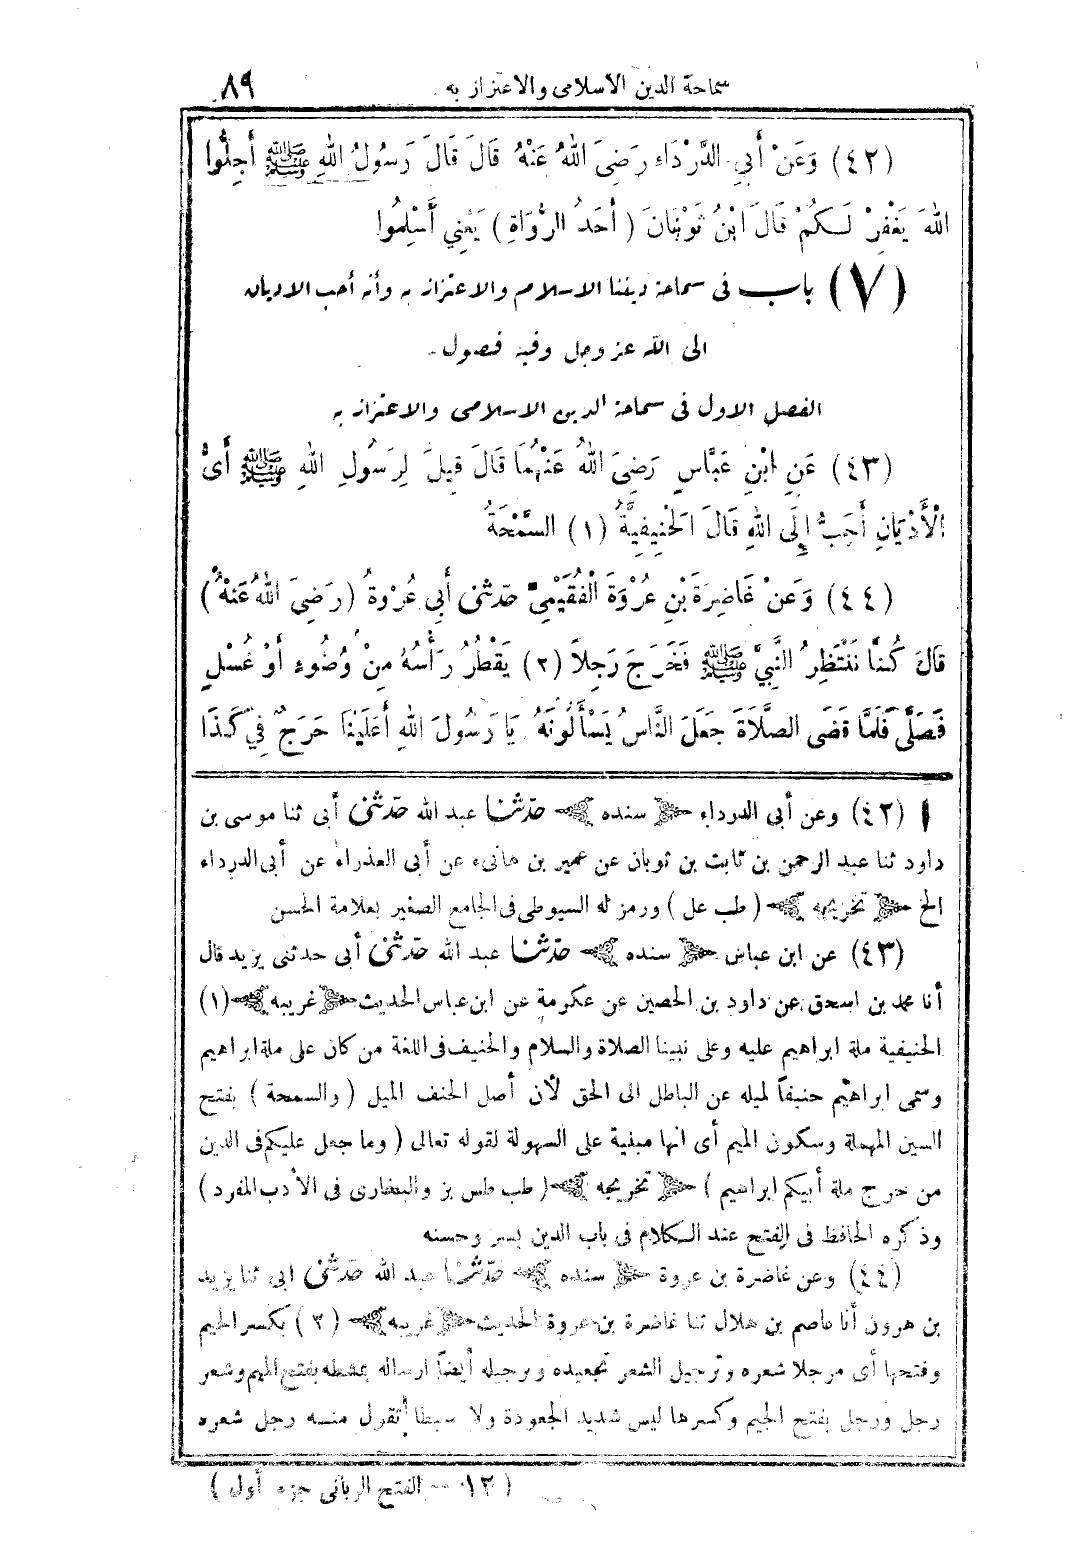 سماحة الدين الاسلامى والاعتزاز به
٨٩
(٤٢) وَعَنْ أَبِي الدَّرْدَاءِ رَضِىَ اللهُ عَنْهُ قَالَ قَالَ رَسُولُ اللهِ ﷺ أَجِلُّوا
اللهَ يَغْفِرْ لَكُمْ قَالَ ابْنُ ثَوْبَانَ ( أَحَدُ الرُّوَاةِ ) يَعْنِي أَسْلِمُوا
(٧) باب فى سماحة ديننا الاسلام والاعتزاز به وأنه أحب الاديان
الى الله عز وجل وفيه فصول
الفصل الاول فى سماحة الدين الاسلامى والاعتزاز به
(٤٣) عَنِ ابْنِ عَبَّاسٍ رَضِىَ اللهُ عَنْهُمَا قَالَ قِيلَ لِرَسُولِ اللهِ ﷺ أَىُّ
الْأَدْيَانِ أَحَبُّ إِلَى اللهِ قَالَ الْحَنِيفِيَّةُ (١) السَّمْحَةُ
(٤٤) وَعَنْ غَاضِرَةَ بْنِ عُرْوَةَ الْفُقَيْمِىِّ حَدَّثَنِى أَبِي عُرْوَةُ (رَضِىَ اللهُ عَنْهُ)
قَالَ كُنَّا نَنْتَظِرُ النَّبِيَّ ﷺ فَخَرَجَ رَجِلاً (٢) يَقْطُرُ رَأْسُهُ مِنْ وُضُوءٍ أَوْ غُسْلٍ
فَصَلَّى فَلَمَّا قَضَى الصَّلَاةَ جَعَلَ النَّاسُ يَسْأَلُونَهُ يَا رَسُولَ اللهِ أَعَلَيْنَا حَرَجٌ فِي كَذَا
(٤٢) وعن أبى الدرداء ﴿ سنده ﴾ حدّثنا عبد الله حدّثنى أبى ثنا موسى بن
داود ثنا عبد الرحمن بن ثابت بن ثوبان عن عمير بن هانىء عن أبى العذراء عن أبى الدرداء
الخ ﴿ تخريجه ﴾ ( طب عل ) ورمز له السيوطى فى الجامع الصغير بعلامة الحسن
(٤٣) عن ابن عباس ﴿ سنده ﴾ حدّثنا عبد الله حدّثنى أبى حدثنى يزيد قال
أنا محمد بن اسحق عن داود بن الحصين عن عكرمة عن ابن عباس الحديث ﴿ غريبه ﴾ (١)
الحنيفية ملة ابراهيم عليه وعلى نبينا الصلاة والسلام والحنيف فى اللغة من كان على ملة ابراهيم
وسمى ابراهيم حنيفاً لميله عن الباطل الى الحق لأن أصل الحنف الميل ( والسمحة ) بفتح
السين المهملة وسكون الميم أى انها مبنية على السهولة لقوله تعالى ( وما جعل عليكم فى الدين
من حرج ملة أبيكم ابراهيم ) ﴿ تخريجه ﴾ ( طب طس بز والبخارى فى الأدب المفرد )
وذكره الحافظ فى الفتح عند الكلام فى باب الدين يسر وحسنه
(٤٤) وعن غاضرة بن عروة ﴿ سنده ﴾ حدّثنا عبد الله حدّثنى ابى ثنا يزيد
بن هرون أنا عاصم بن هلال ثنا غاضرة بن عروة الحديث ﴿ غريبه ﴾ (٢) بكسر الجيم
وفتحها أى مرجلا شعره وترجيل الشعر تجعيده وترجيله أيضاً ارساله بمشطه بفتح الميم وشعر
رجل ورجل بفتح الجيم وكسرها ليس شديد الجعودة ولا سبطا تقول منه رجل شعره
( ١٢ — الفتح الربانى جزء أول )